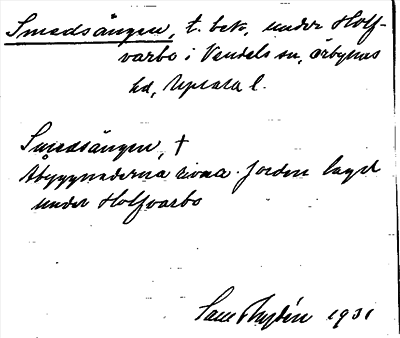 Smedsängen, t. bek, under Holf-
varbo i Vendels sn, Örbyhus
hd, Upsala l.
Smedsängen, †
Åbyggnaderna rivna. Jorden lagd
under Holfvarbo
1931